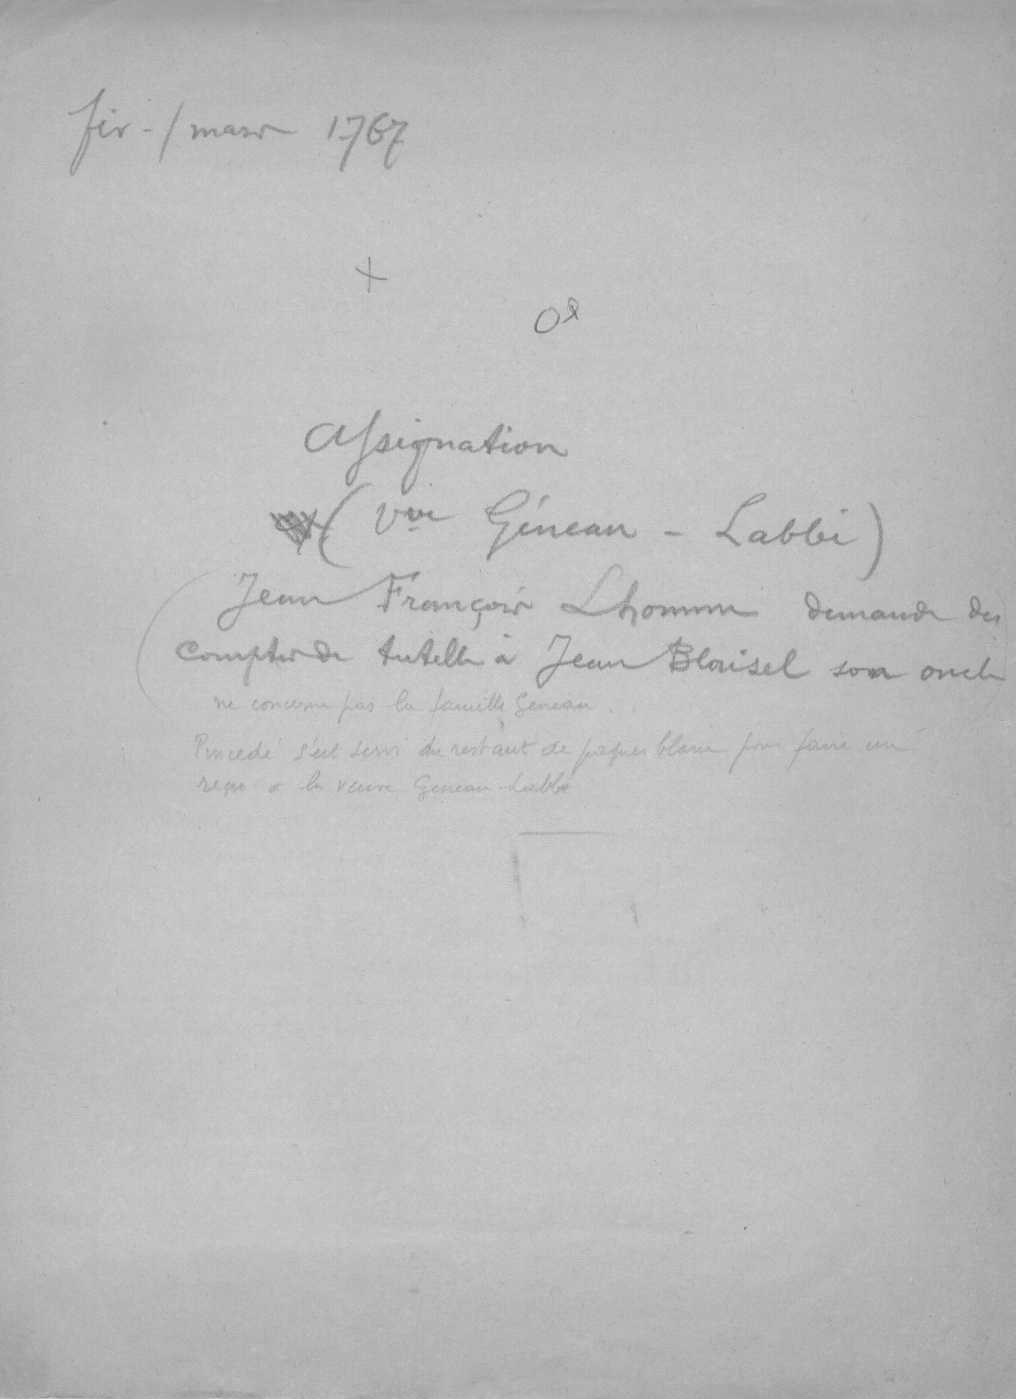 fév - / mars 1767
+
Assignation
(Vve Géneau - Labbé)
Jean François Lhomme demande des
comptes de tutelle à Jean Blaisel son oncle
ne concerne pas la famille Geneau.
s'est servi du restant de papier blanc pour faire un
reçu à la veuve Geneau-Labbé